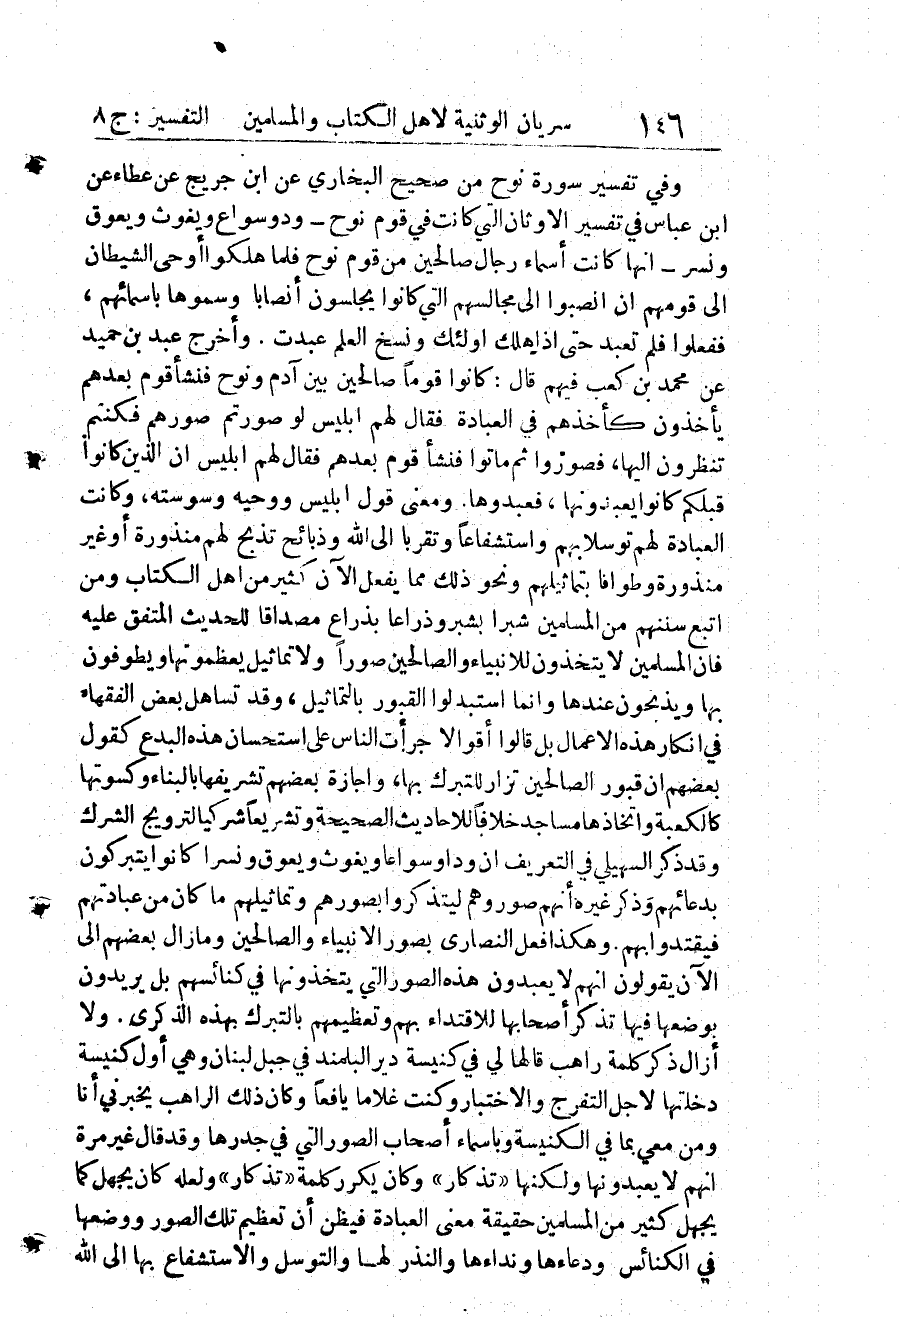 ١٤٦ سريان الوثنية لاهل الكتاب والمسلمين التفسير : ج ٨
وفي تفسير سورة نوح من صحيح البخاري عن ابن جريج عن عطاء عن
ابن عباس في تفسير الاوثان التي كانت في قوم نوح ــ ود وسواع ويغوث ويعوق
ونسر ــ انها كانت أسماء رجال صالحين من قوم نوح فلما هلكوا أوحى الشيطان
الى قومهم ان انصبوا الى مجالسهم التي كانوا يجلسون أنصابا وسموها باسمائهم ،
ففعلوا فلم تعبد حتى اذا هلك اولئك ونسخ العلم عبدت . وأخرج عبد بن حميد
عن محمد بن كعب فيهم قال : كانوا قوماً صالحين بين آدم ونوح فنشأ قوم بعدهم
يأخذون كأخذهم في العبادة فقال لهم ابليس لو صورتم صورهم فكنتم
تنظرون اليها، فصوّروا ثم ماتوا فنشأ قوم بعدهم فقال لهم ابليس ان الذين كانوا
قبلكم كانوا يعبدونها ، فعبدوها. ومعنى قول ابليس ووحيه وسوسته، وكانت
العبادة لهم توسلا بهم واستشفاعاً وتقربا الى الله وذبائح تذبح لهم منذورة أو غير
منذورة وطوافا بتماثيلهم ونحو ذلك مما يفعل الآن كثير من اهل الكتاب ومن
اتبع سننهم من المسلمين شبرا بشبر وذراعا بذراع مصداقا للحديث المتفق عليه
فان المسلمين لا يتخذون للانبياء والصالحين صوراً ولا تماثيل يعظمونها ويطوفون
بها ويذبحون عندها وانما استبدلوا القبور بالتماثيل ، وقد تساهل بعض الفقهاء
في انكار هذه الاعمال بل قالوا أقوالا جرأت الناس على استحسان هذه البدع كقول
بعضهم ان قبور الصالحين تزار للتبرك بها، واجازة بعضهم تشريفها بالبناء وكسوتها
كالكعبة واتخاذها مساجد خلافاً للاحاديث الصحيحة وتشريعاً شركيا لترويج الشرك
وقد ذكر السهيلي في التعريف ان ودا وسواعا ويغوث ويعوق ونسرا كانوا يتبركون
بدعائهم وذكر غيره أنهم صوروهم ليتذكروا بصورهم وتماثيلهم ما كان من عبادتهم
فيقتدوا بهم. وهكذا فعل النصارى بصور الانبياء والصالحين وما زال بعضهم الى
الآن يقولون انهم لا يعبدون هذه الصور التي يتخذونها في كنائسهم بل يريدون
بوضعها فيها تذكر أصحابها للاقتداء بهم وتعظيمهم بالتبرك بهذه الذكرى . ولا
أزال ذكر كلمة راهب قالها لي في كنيسة دير البلمند في جبل لبنان وهي أول كنيسة
دخلتها لاجل التفرج والاختبار وكنت غلاما يافعاً وكان ذلك الراهب يخبرني أنا
ومن معي بما في الكنيسة وباسماء أصحاب الصور التي في جدرها وقد قال غير مرة
انهم لا يعبدونها ولكنها «تذكار» وكان يكرر كلمة «تذكار» ولعله كان يجهل كما
يجهل كثير من المسلمين حقيقة معنى العبادة فيظن أن تعظيم تلك الصور ووضعها
في الكنائس ودعاءها ونداءها والنذر لهــا والتوسل والاستشفاع بها الى الله